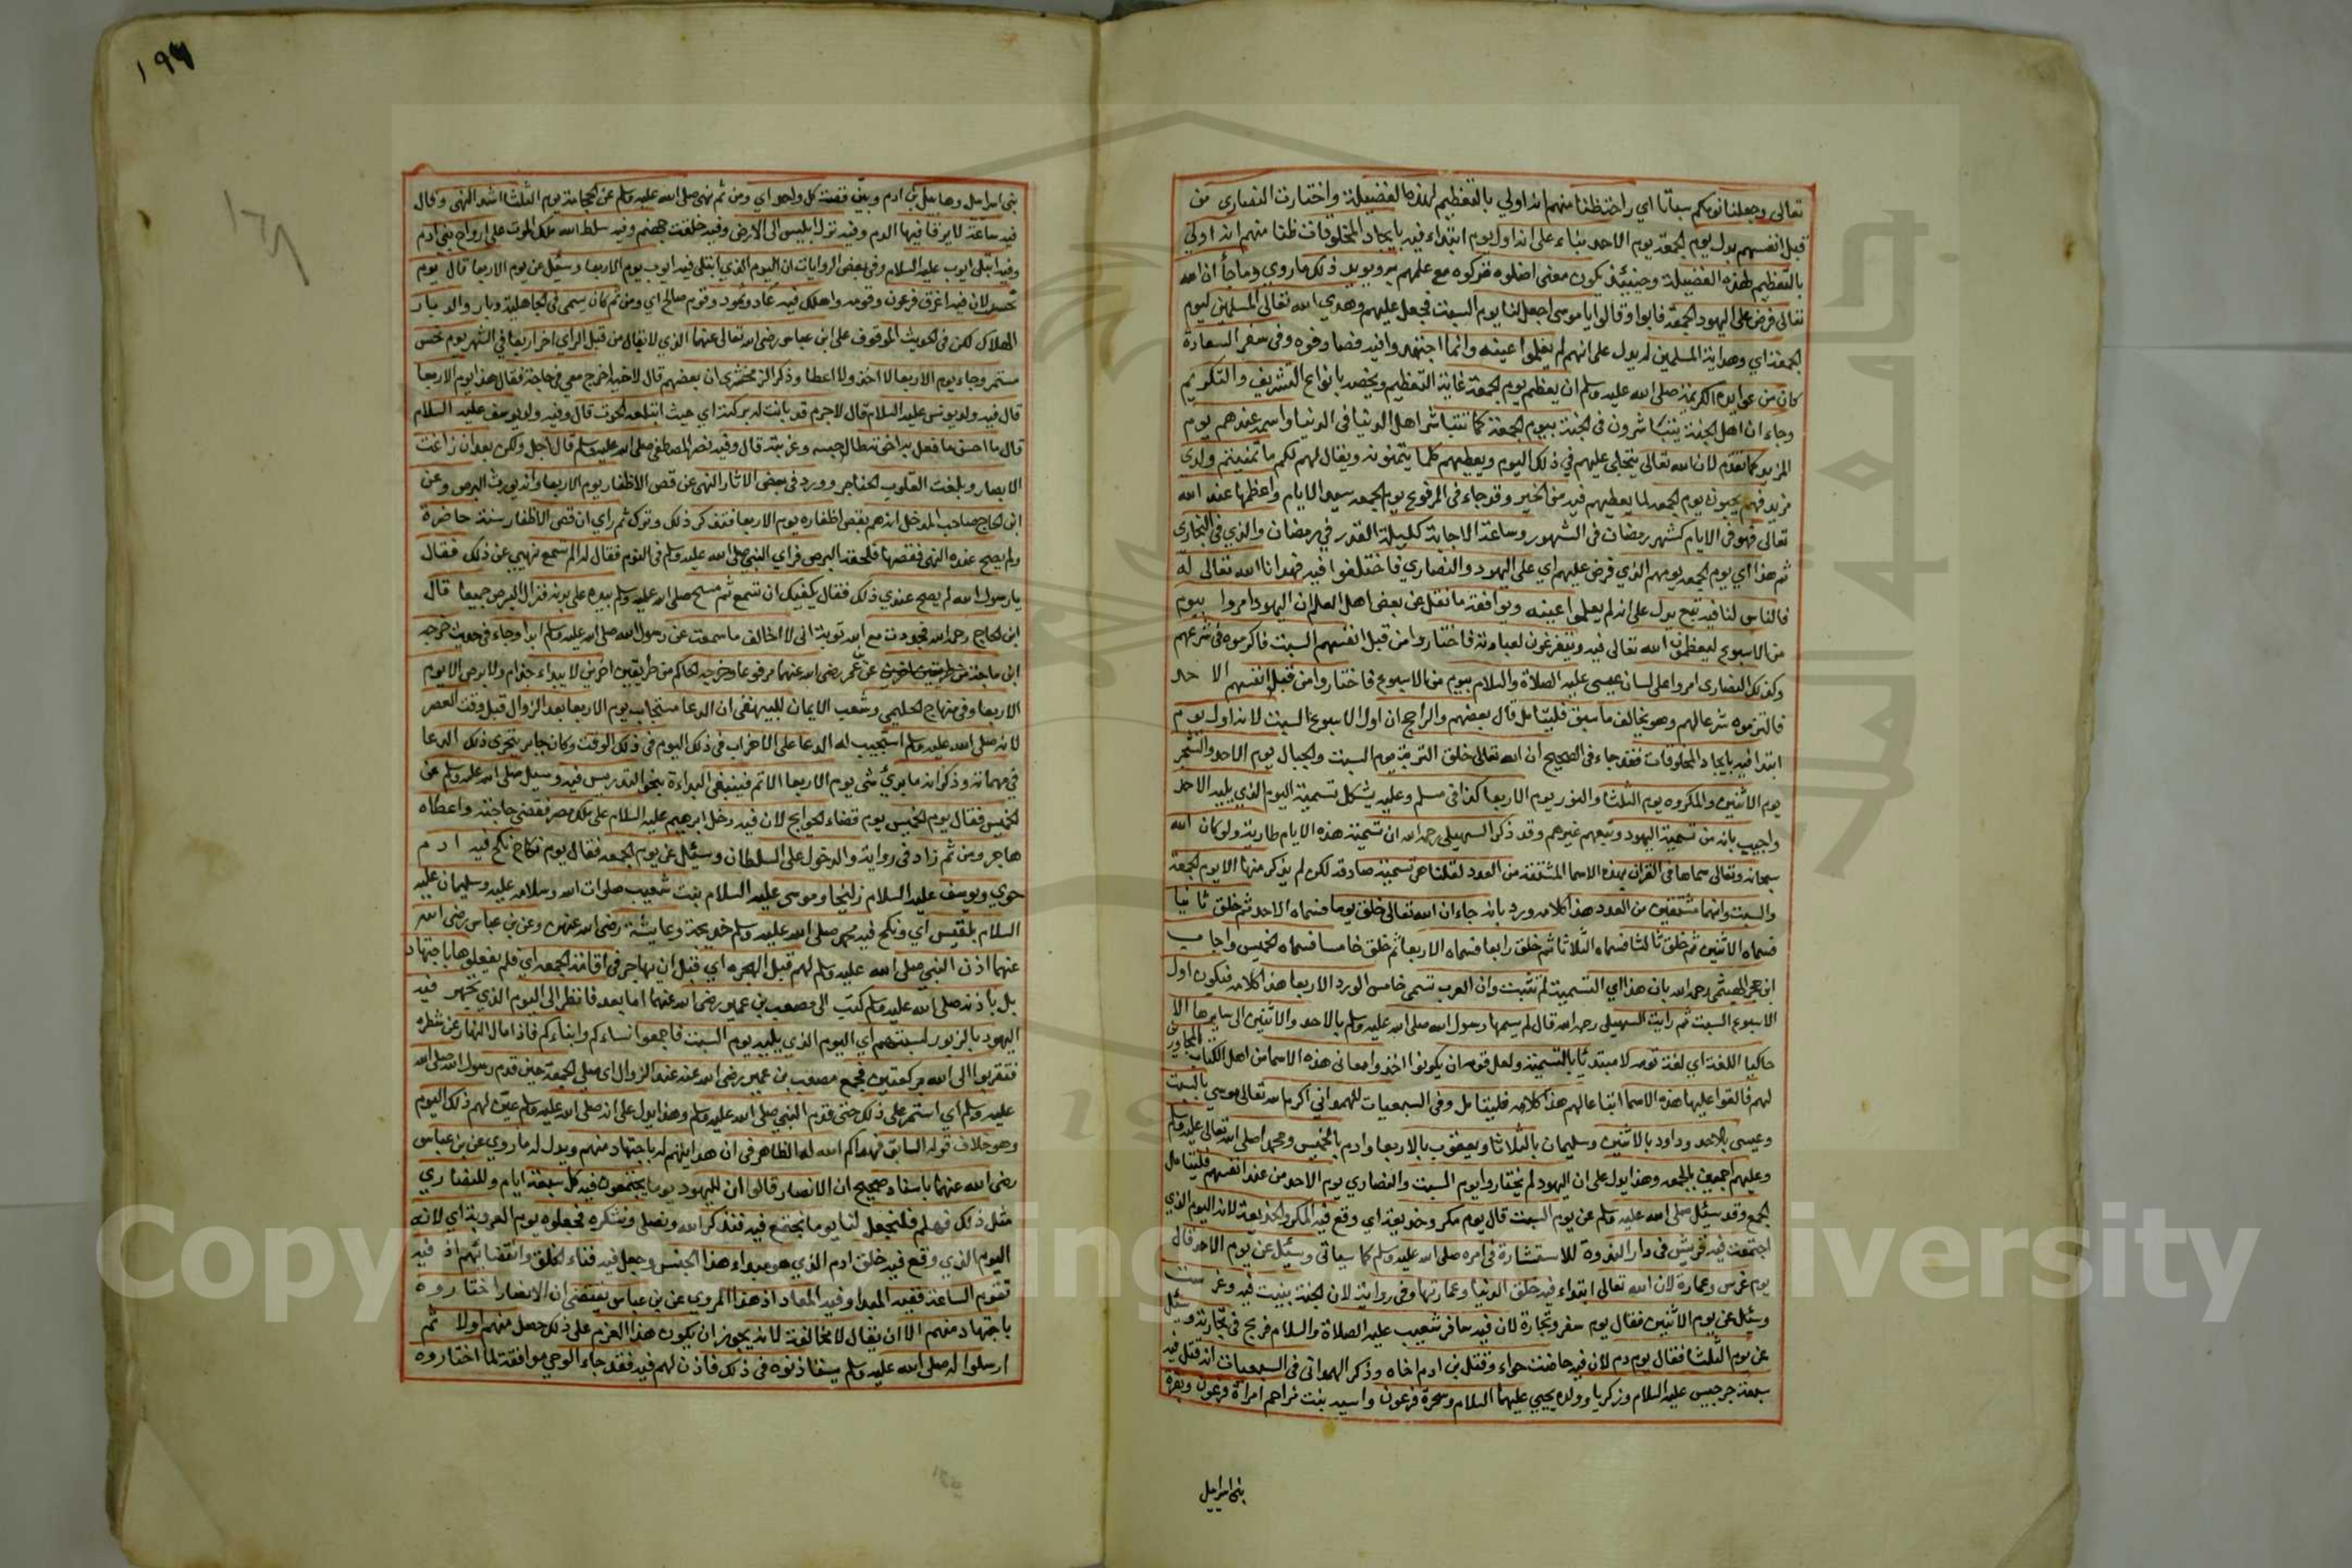 تعالى وجعلنا نومكم سباتا اي راحة ظنا منهم انه اولي بالتعظيم لهذه الفضيلة واختارت النصارى من
قبل انفسهم بدل يوم الجمعة يوم الاحد بناء على انه اول يوم ابتداء فيه بايجاد المخلوقات ظنا منهم انه اولي
بالتعظيم لهذه الفضيلة وحينئذ يكون معنى اضلوه تركوه مع علمهم به ويويد ذلك ما روي وما جأ ان الله
تعالى فرض على اليهود الجمعة فابوا وقالوا يا موسى اجعل لنا يوم السبت فجعل عليهم وهدي الله تعالى المسلمين ليوم
الجمعة اي وهداية المسلمين له يدل على انهم لم يعلموا عينه وانما اجتهدوا فيه فصادفوه وفي سفر السعادة
كان من عوايده الكريمة صلى الله عليه وسلم ان يعظم يوم الجمعة غاية التعظيم ويخصه بانواع التشريف والتكريم
وجاء ان اهل الجنة يتباشرون في الجنة بيوم الجمعة كما تتباشر اهل الدنيا في الدنيا واسمه عندهم يوم
المزيد كما تقدم لان الله تعالى يتجلى عليهم في ذلك اليوم ويعطيهم كلما يتمنونه ويقال لهم لكم ما تمنيتم ولدي
مزيد فهم يحبون يوم الجمعه لما يعطيهم فيه من الخير وقد جاء في المرفوع يوم الجمعه سيد الايام واعظمها عند الله
تعالى فهو في الايام كشهر رمضان في الشهور وساعة الاجابة كليلة القدر في رمضان والذي في البخارى
ثم هذا اي يوم الجمعه يومهم الذي فرض عليهم اي على اليهود والنصاري فاختلفوا فيه فهدانا الله تعالى له
فالناس لنا فيه تبع يدل على انه لم يعلموا عينه ويوافقه ما نقل عن بعض اهل العلم ان اليهود امروا بيوم
من الاسبوع ليعظمون الله تعالى فيه ويتفرغون لعبادته فاختاروا من قبل انفسهم السبت فاكرموه في شرعهم
وكذلك النصارى امروا على لسان عيسى عليه الصلاة والسلام بيوم من الاسبوع فاختاروا من قبل انفسهم الاحد
فالتزموه شرعا لهم وهو يخالف ما سبق فليتامل قال بعضهم والراجح ان اول الاسبوع السبت لانه اول يوم
ابتدا فيه بايجاد المخلوقات فقد جاء في الصحيح ان الله تعالى خلق التربة يوم السبت والجبال يوم الاحد والشجر
يوم الاثنين والمكروه يوم الثلثا والنور يوم الاربعا كذا في مسلم وعليه يشكل تسمية اليوم الذي يليه الاحد
واجيب بانه من تسمية اليهود وتبعهم غيرهم وقد ذكر السهيلى رحمه الله ان تسمية هذه الايام طارية ولو كان الله
سبحانه وتعالى سماها في القران بهذه الاسما المشتقة من العدد لقلنا هي تسمية صادقه لكن لم يذكر منها الا يوم الجمعة
والسبت وانهما مشتقين من العدد هذا كلامه ورد بانه جاء ان الله تعالى خلق يوما فسماه الاحد ثم خلق ثانيا
فسماه الاثنين ثم خلق ثالثا فسماه الثلاثا ثم خلق رابعا فسماه الاربعا ثم خلق خامسا فسماه الخميس واجاب
ابن حجر الهيتمى رحمه الله بان هذا اي التسمية لم تثبت وان العرب تسمى خامس الورد الاربعا هذا كلامه فيكون اول
الاسبوع السبت ثم رايت السهيلى رحمه الله قال لم يسمها رسول الله صلى الله عليه وسلم بالاحد والاثنين الى سايرها الا
حاكيا اللغة اي لغة قومه لا مبتدئا بالتسمية ولعل قومه ان يكونوا اخذوا معاني هذه الاسما من اهل الكتاب
المجاورين
لهم فالقوا عليها هذه الاسما اتباعا لهم هذا كلامه فليتامل وفي السبعيات للهمداني اكرم الله تعالى موسي بالسبت
وعيسى بالاحد وداود بالاثنين وسليمان بالثلاثا ويعقوب بالاربعا وادم بالخميس ومحمدا صلى الله تعالى عليه وسلم
وعليهم اجمعين بالجمعه وهذا يدل على ان اليهود لم يختاروا يوم السبت والنصاري يوم الاحد من عند انفسهم فليتامل
الجمع وقد سئل صلى الله عليه وسلم عن يوم السبت قال يوم مكر وخديعة اي وقع فيه المكر والخديعة لانه اليوم الذي
اجتمعت فيه قريش في دار الندوة للاستشارة في امره صلى الله عليه وسلم كما سياتي وسئل عن يوم الاحد قال
يوم غرس وعمارة لان الله تعالى ابتداء فيه خلق الدنيا وعمارتها وفي رواية لان الجنة بنيت فيه وغرست
وسئل عن يوم الاثنين فقال يوم سفر وتجارة لان فيه سافر شعيب عليه الصلاة والسلام فربح في تجارته وسئل
عن يوم الثلثا فقال يوم دم لان فيه حاضت حواء وقتل بن ادم اخاه وذكر الهمداني في السبعيات انه قتل فيه
سبعة جرجيس عليه السلام وزكريا وولده يحيي عليهما السلام وسحرة فرعون واسيه بنت مزاحم امراة فرعون وبقرة
بنى اسرايل
١٩٦
بنى اسرايل وهابيل بن ادم وبين قصة كل واحد اي ومن ثم نهى صلى الله عليه وسلم عن الحجامة يوم الثلثا اشد النهي وقال
فيه ساعة لا يرقا فيها الدم وفيه نزل ابليس الى الارض وفيه خلقت جهنم وفيه سلط الله ملك الموت على ارواح بني ادم
وفيه ابتلى ايوب عليه السلام وفي بعض الروايات ان اليوم الذي ابتلى فيه ايوب يوم الاربعا وسئل عن يوم الاربعا قال يوم
نحس لان فيه اغرق فرعون وقومه واهلك فيه عاد وثمود وقوم صالح اي ومن ثم كان يسمى في الجاهلية دبار والدبار
الهلاك لكن في الحديث الموقوف على ابن عباس رضى الله تعالى عنهما الذي لا يقال من قبل الراي اخر اربعا في الشهر يوم نحس
مستمر وجاء يوم الاربعا لا اخذ ولا اعطا وذكر الزمخشرى ان بعضهم قال لاخيه اخرج معي في حاجة فقال هذا يوم الاربعا
قال فيه ولد يونس عليه السلام قال لا جرم قد بانت له بركته اي حيث ابتلعه الحوت قال وفيه ولد يوسف عليه السلام
قال ما احسن ما فعل به اخوته طال حبسه وغربته قال وفيه نصر المصطفى صلى الله عليه وسلم قال اجل ولكن بعد ان زاغت
الابصار وبلغت القلوب الحناجر وورد في بعض الاثار النهي عن قص الاظفار يوم الاربعا وانه يورث البرص وعن
ابن الحاج صاحب المدخل انه هم بقص اظفاره يوم الاربعا فتذكر ذلك وترك ثم راي ان قص الاظفار سنة حاضرة
ولم يصح عنده النهي فقصها فلحقه البرص فراي النبي صلى الله عليه وسلم في النوم فقال له الم تسمع نهيي عن ذلك فقال
يا رسول الله لم يصح عندي ذلك فقال يكفيك ان تسمع ثم مسح صلى الله عليه وسلم بيده على بدنه فزال البرص جميعا قال
ابن الحاج رحمه الله فجددت مع الله توبة اني لا اخالف ما سمعت عن رسول الله صلى الله عليه وسلم ابدا وجاء في حديث خرجه
ابن ماجة من طريقين اخرين عن عمر رضى الله عنهما مرفوعا وخرجه الحاكم من طريقين اخرين لا يبداء جذام ولا برص الا يوم
الاربعا وفي منهاج الحليمي وشعب الايمان للبيهقى ان الدعا مستجاب يوم الاربعا بعد الزوال قبل وقت العصر
لانه صلى الله عليه وسلم استجيب له الدعا على الاحزاب في ذلك اليوم في ذلك الوقت وكان جابر يتحرى ذلك الدعا
في مهماته وذكر انه ما بدئ شي يوم الاربعا الا تم فينبغي البداءة بنحو التدريس فيه وسيل صلى الله عليه وسلم عن
الخميس فقال يوم الخميس يوم قضاء الحوايج لان فيه دخل ابرهيم عليه السلام على ملك مصر فقضى حاجته واعطاه
هاجر ومن ثم زاد في رواية والدخول على السلطان وسئل عن يوم الجمعه فقال يوم نكاح نكح فيه ادم
حوي ويوسف عليه السلام زليخا وموسى عليه السلام بنت شعيب صلوات الله وسلامه عليه وسليمان عليه
السلام بلقيس اي ونكح فيه محمد صلى الله عليه وسلم خديجة وعايشة رضى الله عنهن وعن بن عباس رضى الله
عنهما اذن النبي صلى الله عليه وسلم لهم قبل الهجره اي قبل ان يهاجر في اقامة الجمعه اي فلم يفعلوها باجتهاد
بل باذنه صلى الله عليه وسلم كتب الى مصعب بن عمير رضى الله عنهما اما بعد فانظر الى اليوم الذي تجهر فيه
اليهود بالزبور لسبتهم اي اليوم الذي يليه يوم السبت فاجمعوا نساءكم وابناءكم فاذا مال النهار عن شطره
فتقربوا الى الله بركعتين فجمع مصعب بن عمير رضى الله عنه عند الزوال اى صلى الجمعة حين قدم رسول الله صلى الله
عليه وسلم اي استمر على ذلك حتى قدم النبي صلى الله عليه وسلم وهذا يدل على انه صلى الله عليه وسلم عين لهم ذلك اليوم
وهو خلاف قوله السابق فهداكم الله له الظاهر في ان هدايتهم له باجتهاد منهم ويدل له ما روي عن بن عباس
رضى الله عنهما باسناد صحيح ان الانصار قالوا ان لليهود يوما يجتمعون فيه كل سبعة ايام وللنصاري
مثل ذلك فهلم فلنجعل لنا يوما نجتمع فيه فنذكر الله ونصلى ونشكره فجعلوه يوم العروبة اي لانه
اليوم الذي وقع فيه خلق ادم الذي هو مبداء هذا الجنس وجعل فيه فناء الخلق وانقضائهم اذ فيه
تقوم الساعة ففيه المبدا وفيه المعاد اذ هذا المروي عن بن عباس يقتضى ان الانصار اختاروه
باجتهاد منهم الا ان يقال لا مخالفة لانه يجوز ان يكون هذا العزم على ذلك حصل منهم اولا ثم
ارسلوا له صلى الله عليه وسلم يستاذنوه في ذلك فاذن لهم فيه فقد جاء الوحي موافقة لما اختاروه
Copyright © King Saud University